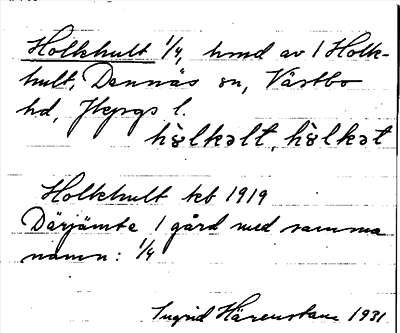 Holkhult 1/4, hmd av 1 Holk-
hult, Dannäs sn, Västbo
hd, Jkpgs l.
hòlkəlt, hòlkət
Holkhult kb 1919
Därjämte 1 gård med samma
namn: 1/4
Ingrid Härenstam 1931